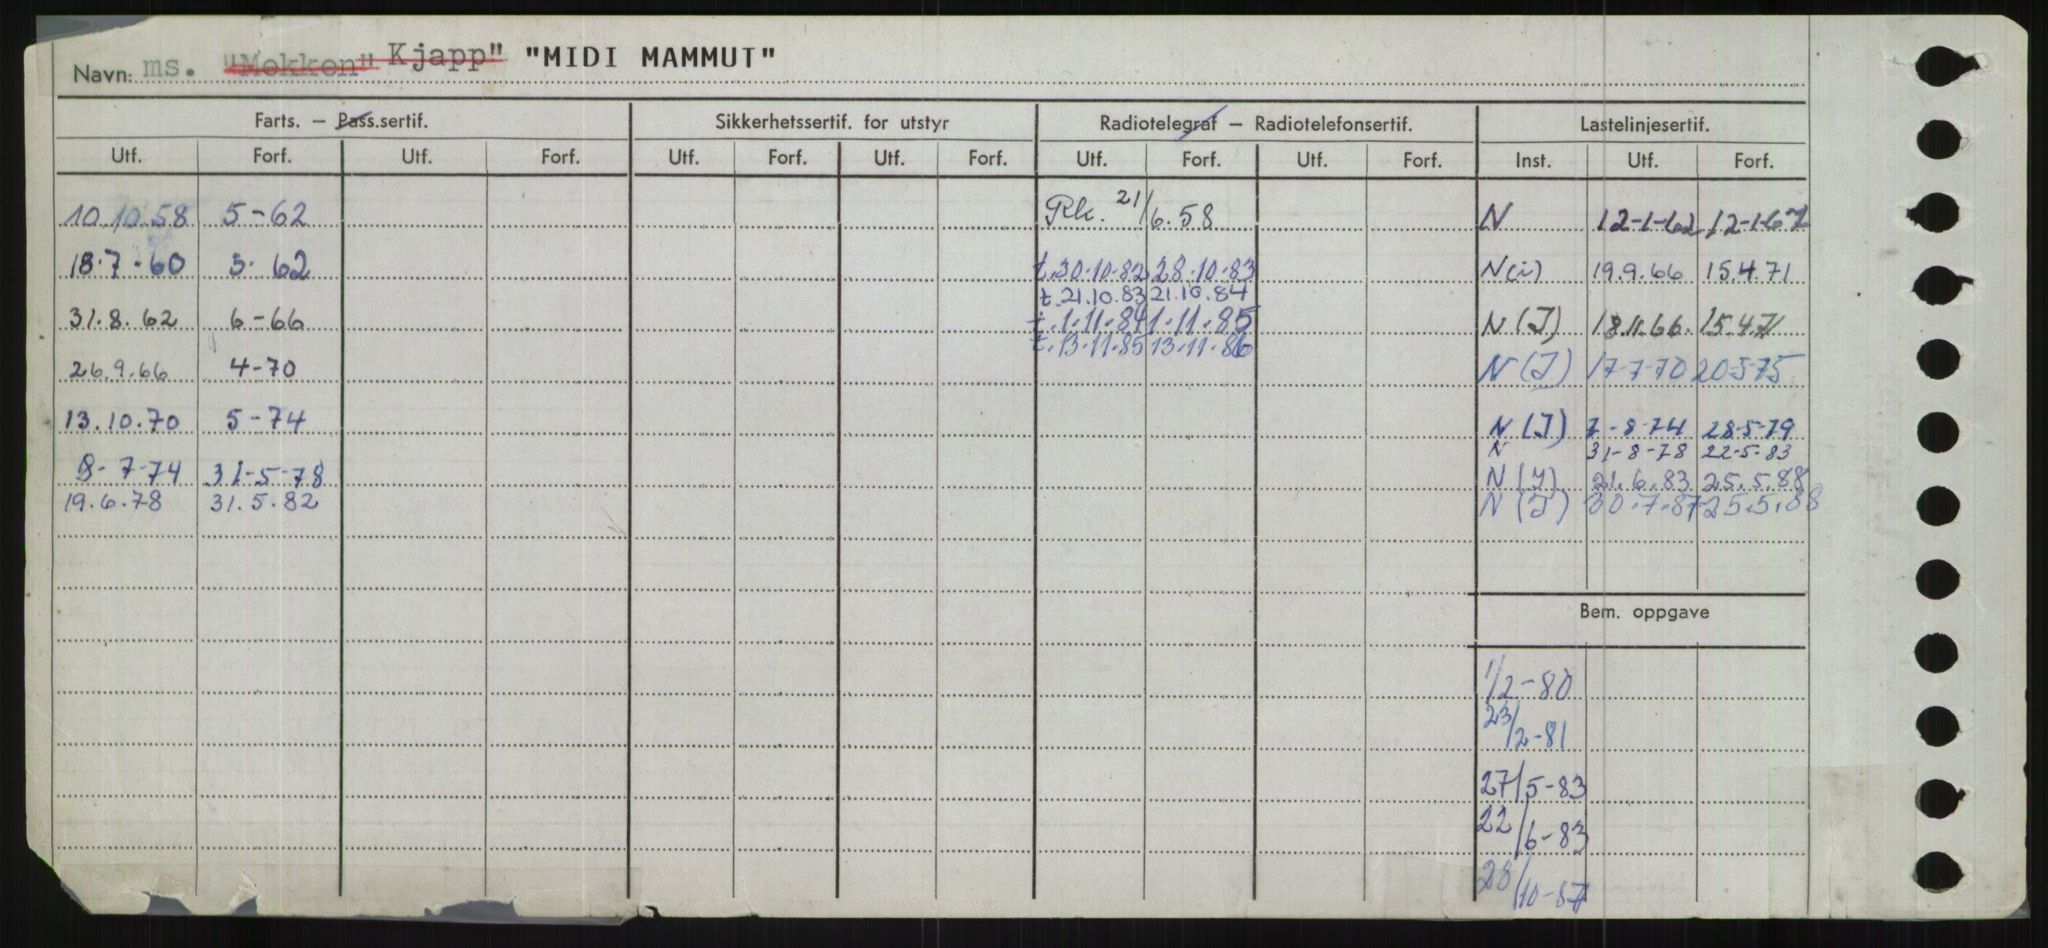 Navn: ms. "Mokken" Kjapp" "MIDI MAMMUT"
Farts. – Pass.sertif. Sikkerhetssertif. for utstyr Radiotelegraf – Radiotelefonsertif. Lastelinjesertif.
Utf. Forf. Utf. Forf. Utf. Forf. Utf. Forf. Utf. Forf. Utf. Forf. Inst. Utf. Forf.
10.10.58 5-62 21/6.58 N 12-1-62 12-1-67
18.7.60 3-62 t.30.10.82 28.10.83 N(i) 19.9.66 15.4.71
t.21.10.83 21.10.84
31.8.62 6-66 t.1.11.84 1.11.85 N(I) 18.11.66. 15.4.71
t.13.11.85 13.11.86
26.9.66 4-70 N(I) 17-7-70 20-5-75
13.10.70 5-74 N(I) 7-8-74 28-5-79
N 31-8-78 22-5-83
8-7-74 31-5-78 N(I) 21.6.83 25.5.88
19.6.78 31.5.82 N(I) 30.7.87 25.5.88
Bem. oppgave
1/2-80
23/2-81
27/5-83
22/6-83
28/10-87